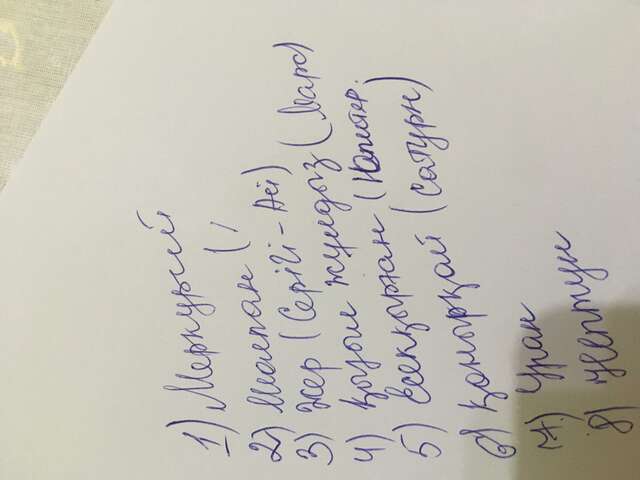 1) Меркурий
2) Шолпан (
3) Жер (Серігі - Ай)
4) Қызыл жұлдыз (Марс)
5) Есекқырған (Юпитер.
6) Қоңырқай (Сатурн)
7) Уран
8) Нептун